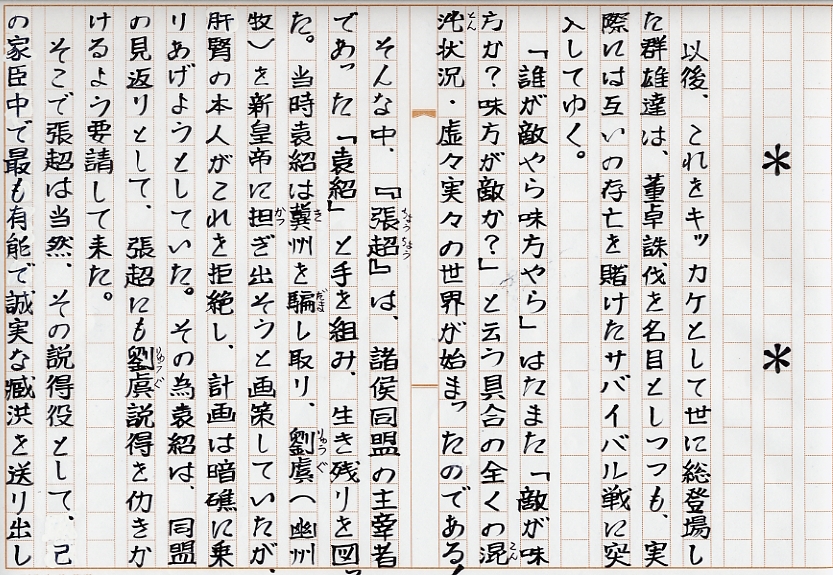 ＊　＊
以後、これをキッカケとして世に総登場し
た群雄達は、董卓誅伐を名目としつつも、実
際には互いの存亡を賭けたサバイバル戦に突
入してゆく。
「誰が敵やら味方やら」はたまた「敵が味
方か？味方が敵か？」と云う具合の全くの混
沌状況・虚々実々の世界が始まったのである！
そんな中、『張超』は、諸侯同盟の主宰者
であった「袁紹」と手を組み、生き残りを図っ
た。当時袁紹は冀州を騙し取り、劉虞（幽州
牧）を新皇帝に担ぎ出そうと画策していたが、
肝腎の本人がこれを拒絶し、計画は暗礁に乗
りあげようとしていた。その為袁紹は、同盟
の見返りとして、張超にも劉虞説得を仂きか
けるよう要請して来た。
そこで張超は当然、その説得役として、己
の家臣中で最も有能で誠実な臧洪を送り出し